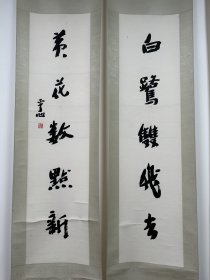 白鷺雙飛去
黃花數點